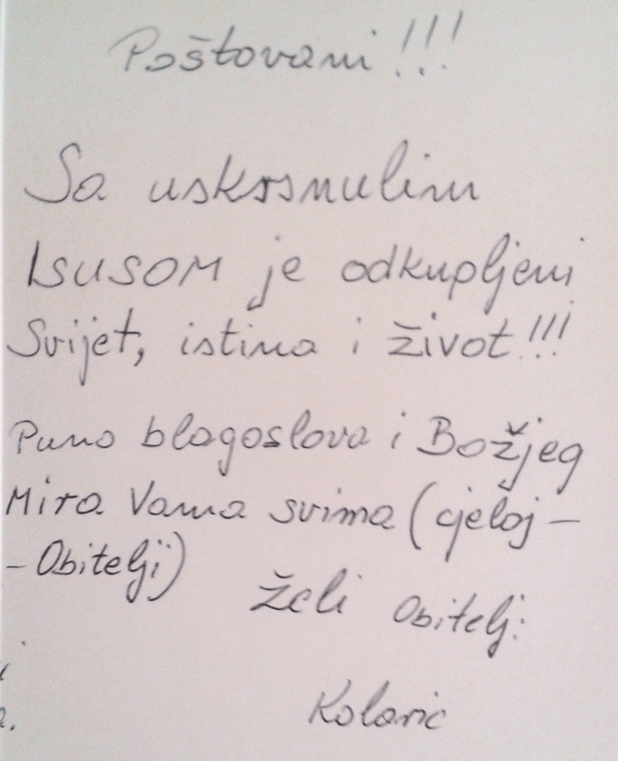 Poštovani!!!
Sa uskrsnulim
ISUSOM je odkupljeni
Svijet, istina i život!!!
Puno blagoslova i Božjeg
Mira Vama svima (cjeloj-
-Obitelji)
Želi Obitelj:
Kolaric